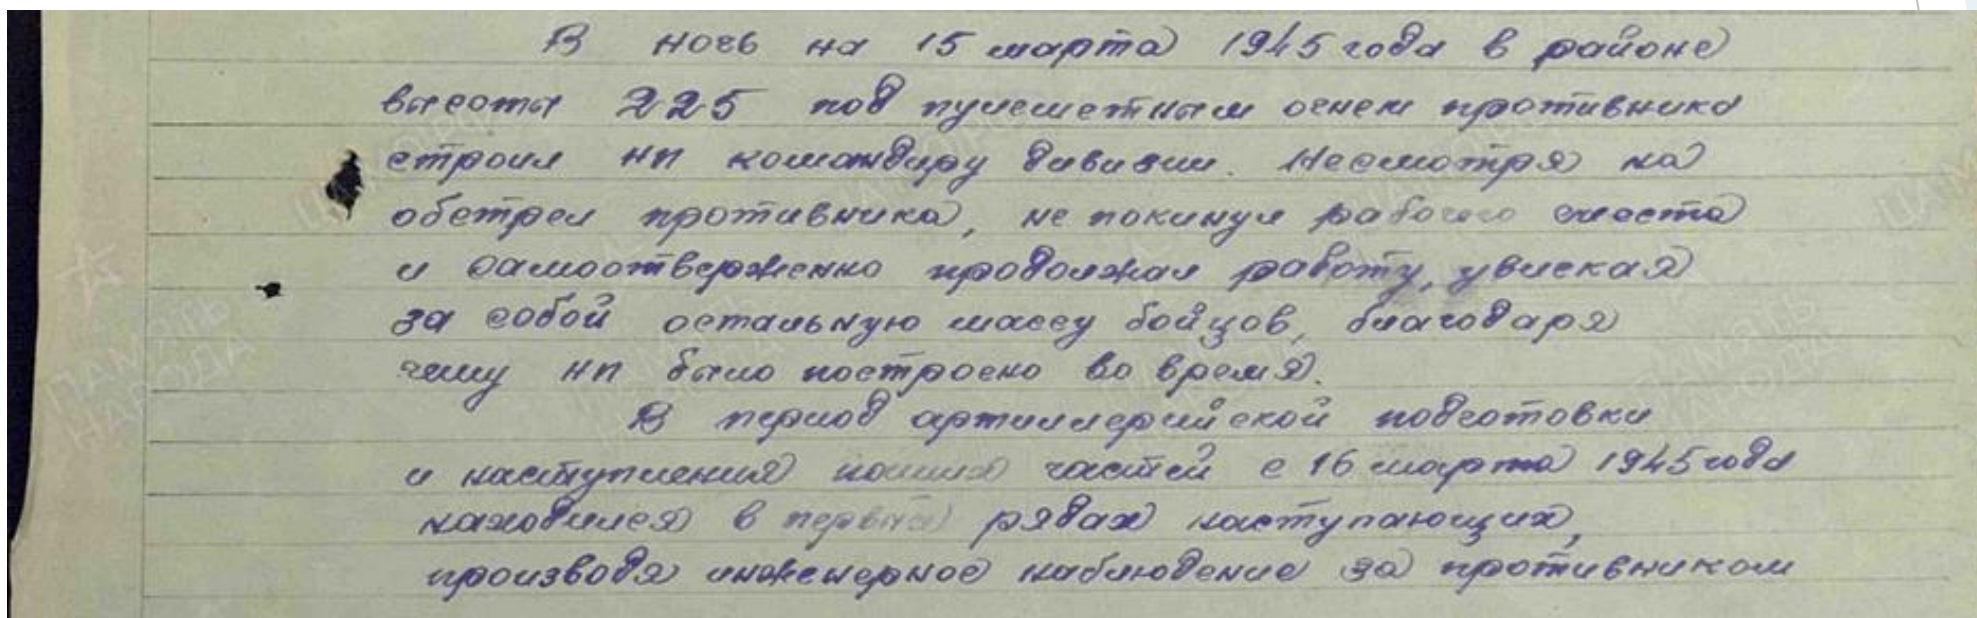 В ночь на 15 марта 1945 года в районе
высоты 225 под пулеметным огнем противника
строил НП командиру дивизии. Несмотря на
обстрел противника, не покинул рабочего места
и самоотверженно продолжал работу, увлекая
за собой остальную массу бойцов, благодаря
чему НП было построено во время.
В период артиллерийской подготовки
и наступления наших частей с 16 марта 1945 года
находился в первых рядах наступающих,
производя инженерное наблюдение за противником
ПАМЯТЬ
НАРОДА